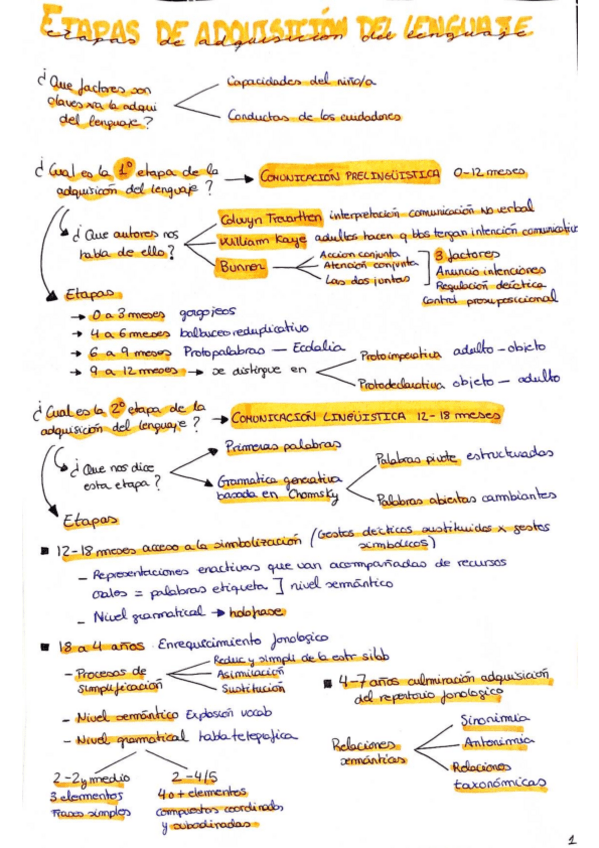 ETAPAS DE ADQUISICIÓN DEL LENGUAJE
etapas de adquisición del lenguaje
¿Que factores son
claves xa la adqui
del lenguaje?
Capacidades del niño/a
Conductas de los cuidadores
¿Cual es la 1º etapa de la
adquisicón del lenguaje?
COMUNICACIÓN PRELINGÜISTICA 0-12 meses
¿Que autores nos
habla de ello?
Colwyn Trevarthen interpretación comunicación no verbal
William Kaye adultos hacen q bbs tengan intención comunicativa
Bunner
Accion conjunta
Atención conjunta
Las dos juntas
3 factores
Anuncio intenciones
Regulación deictica
Control presuposicional
Etapas
→ 0 a 3 meses gorgojeos
→ 4 a 6 meses balbuceo reduplicativo
→ 6 a 9 meses Protopalabras — Ecolalia
→ 9 a 12 meses → se distingue en
Protoimperativa adulto-objeto
Protodeclarativa objeto - adulto
¿Cual es la 2º etapa de la
adquisición del lenguaje?
COMUNICACIÓN LINGÜISTICA 12-18 meses
¿Que nos dice
esta etapa?
Primeras palabras
Gramatica generativa
basada en Chomsky
Palabras pivote estructuradas
Palabras abiertas cambiantes
Etapas
12-18 meses acceso a la simbolización (Gestos deicticos sustituidos x gestos
simbolicos)
- Representaciones enactivas que van acompañadas de recursos
orales = palabras etiqueta ] nivel semántico
- Nivel gramatical → holofrase
18 a 4 años Enrequecimiento fonologico
- Procesos de
simplificación
Reduc y simpli de la estr silab
Asimilación
Sustitución
- Nivel semántico Explosión vocab
- Nivel gramatical habla telegrafica
2-2 y medio
3 elementos
Frases simples
2-4/5
4 o + elementos
compuestos coordinadas
y subordinadas
4-7 años culminación adquisición
del repertorio fonologico
Relaciones
semánticas
Sinonimia
Antonimia
Relaciones
taxonómicas
1